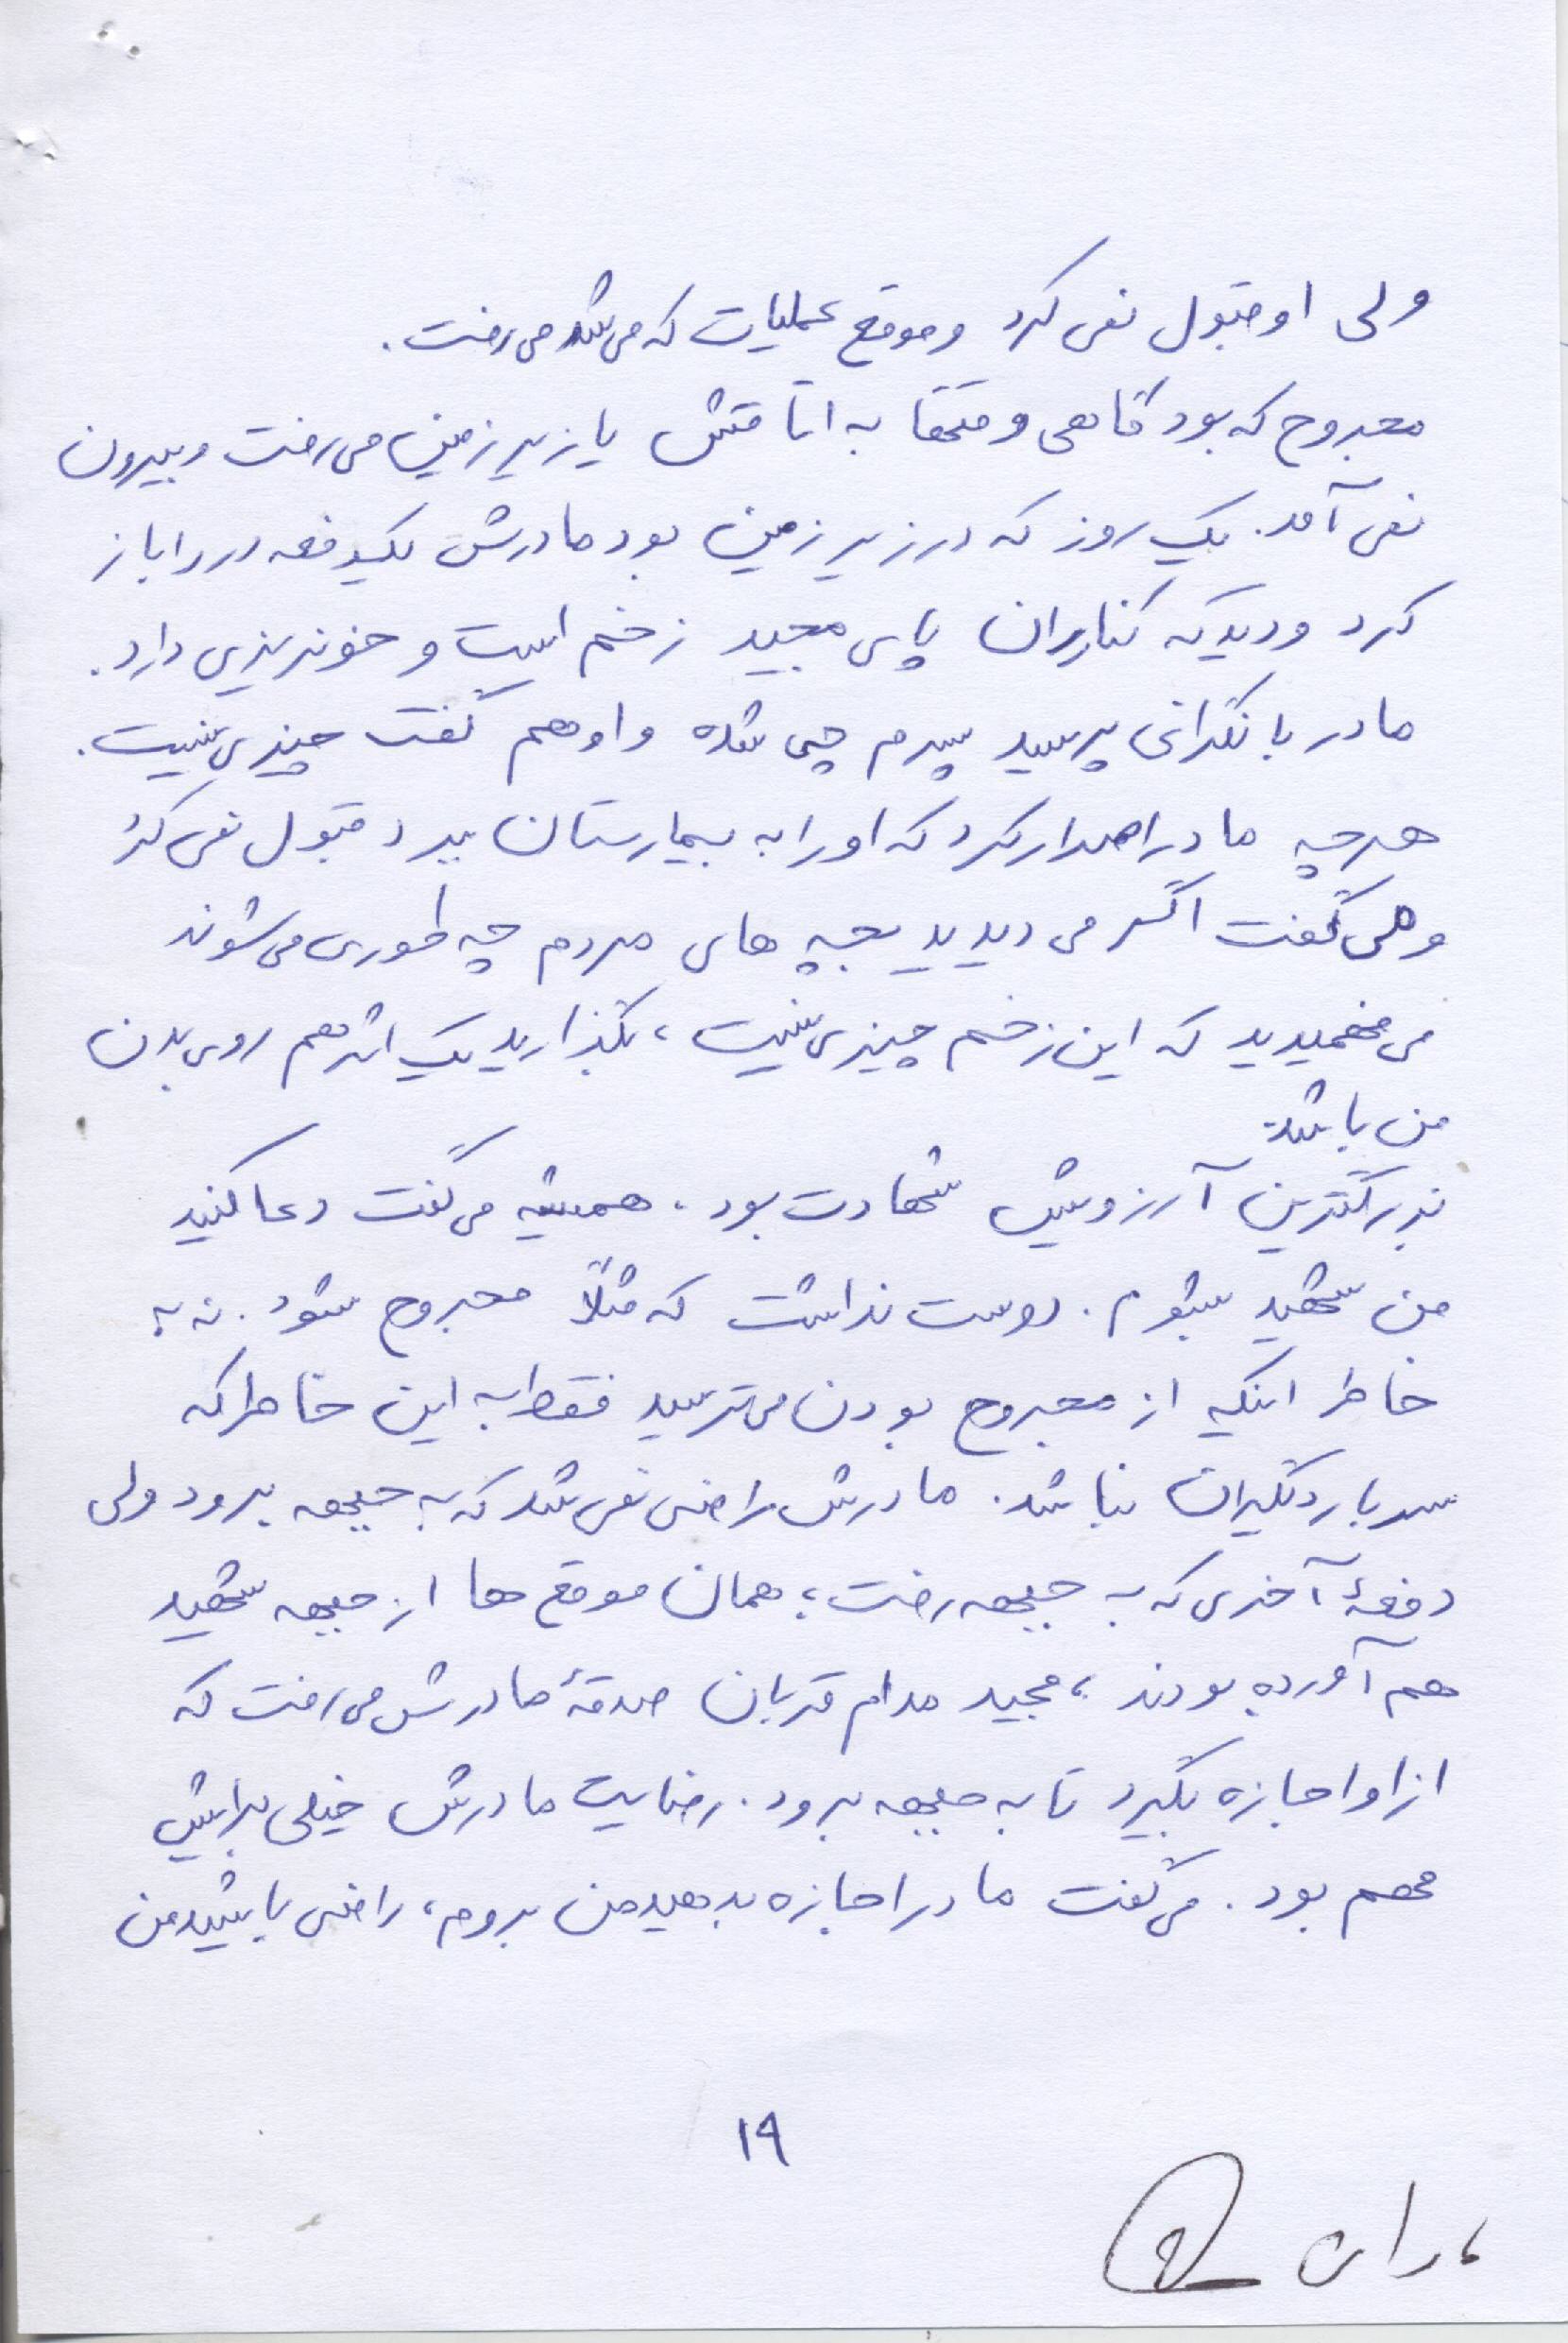 ولی او قبول نمی کرد و موقع عملیات که می شد می رفت.
مجروح که بود گاهی وقتها به اتاقش یا زیرزمین می رفت و بیرون
نمی آمد. یک روز که در زیر زمین بود مادرش یکدفعه در را باز
کرد و دید که کنار ران پای مجید زخم است و خونریزی دارد.
مادر با نگرانی پرسید پسرم چی شده و او هم گفت چیزی نیست.
هرچه مادر اصرار کرد که او را به بیمارستان ببرد قبول نمی کرد
و می گفت اگر می دیدید بچه های مردم چه طوری می شوند
می فهمیدید که این زخم چیزی نیست، بگذارید یک اثر هم روی بدن
من باشد.
بزرگترین آرزویش شهادت بود. همیشه می گفت دعا کنید
من شهید بشوم. دوست نداشت که مثلاً مجروح شود. نه به
خاطر اینکه از مجروح بودن می ترسید فقط به این خاطر که
سربار دیگران نباشد. مادرش راضی نمی شد که به جبهه برود ولی
دفعهٔ آخری که به جبهه رفت؛ همان موقع ها از جبهه شهید
هم آورده بودند، مجید مدام قربان صدقهٔ مادرش می رفت که
از او اجازه بگیرد تا به جبهه برود. رضایت مادرش خیلی برایش
مهم بود. می گفت مادر اجازه بدهید من بروم، راضی باشید من
۱۹